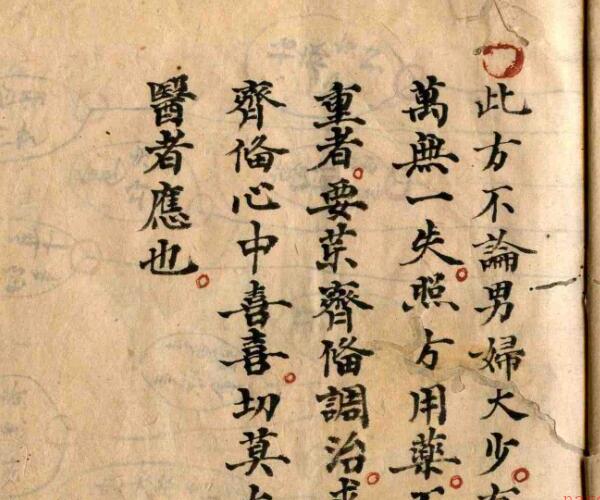 此方不論男婦大少
萬無一失照方用藥
重者要藥齊俻調治
齊俻心中喜喜切莫
醫者應也